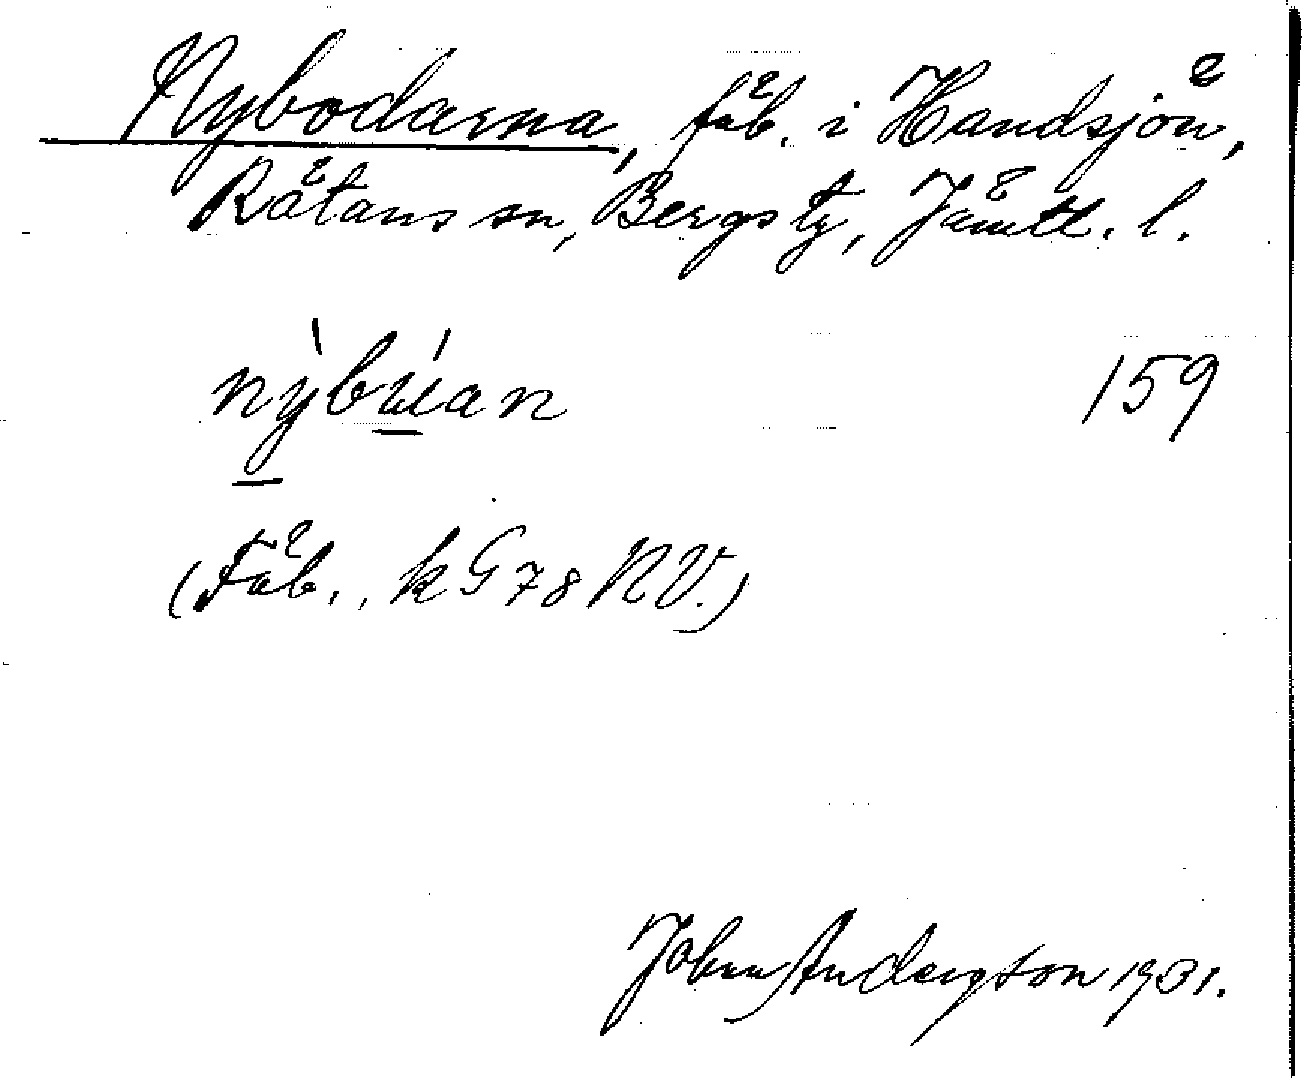 Nybodarna, fäb. i Handsjön,
Rätans sn, Bergs tg, Jämtl. l.
nỳbúan 159
(Fäb., k G 78 NV.)
Johan Anderson 1931.